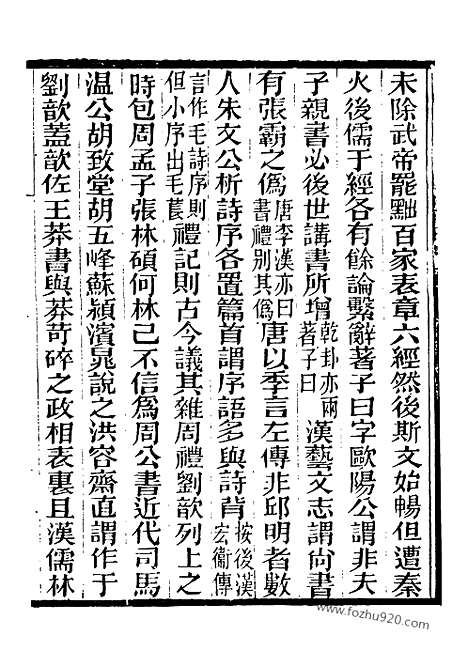 未除武帝罷黜百家表章六經然後斯文始暢但遭秦
火後儒于經各有餘論繫辭著子曰字歐陽公謂非夫
子親書必後世講書所增乾卦亦兩著子曰漢藝文志謂尙書
有張霸之僞唐李漢亦曰書禮別其僞唐以季言左傳非邱明者數
人朱文公析詩序各置篇首謂序語多與詩背按後漢宏衞傳
言作毛詩序則但小序出毛萇禮記則古今議其雜周禮劉歆列上之
時包周孟子張林碩何林已不信爲周公書近代司馬
温公胡致堂胡五峰蘇潁濱晁說之洪容齋直謂作于
劉歆蓋歆佐王莽書與莽苛碎之政相表裏且漢儒林
www.fozhu920.com